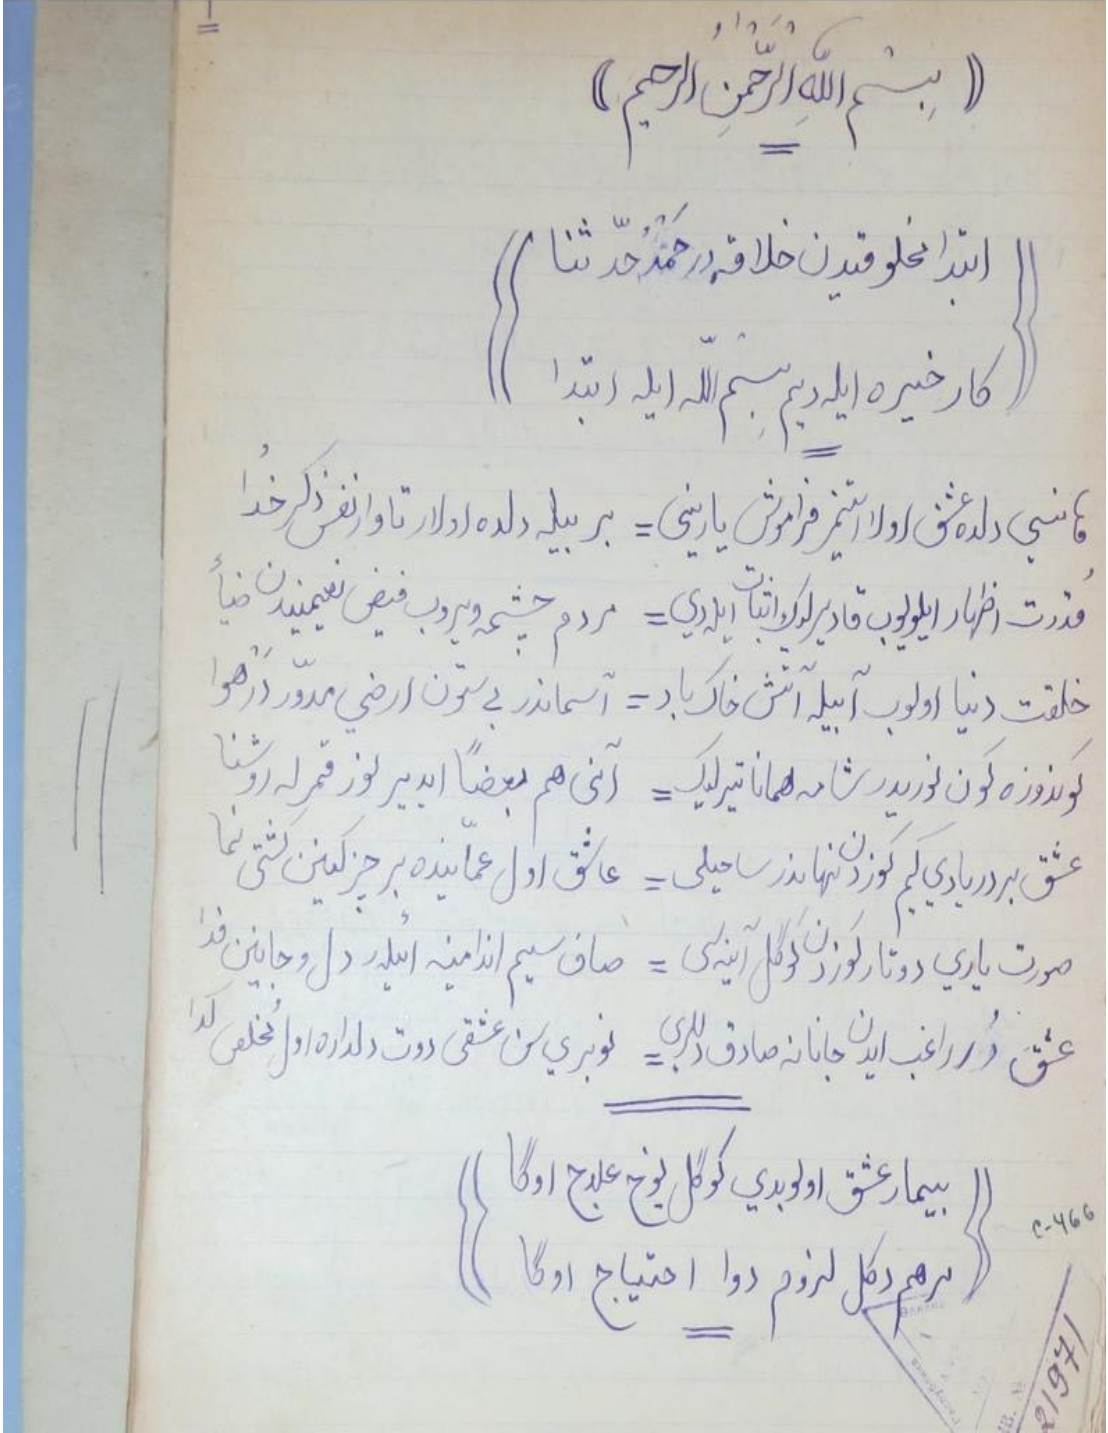 ا
(( بِسْمِ اللّٰهِ الرَّحْمٰنِ الرحيم ))
ابتدا مخلوقیدن خلاقه در حَمْدُ حَدّ ثنا
کار خیره ایله دیم بِسْم اللّه ایله ابتدا
قانسی دلده عشق اولا ایتمز فراموش یارینی = بر بیله دلده اولار تا وار نفس ذکر خُدا
قُدرت اظهار ایلویوب قادیرلوک اثبات ایلدي = مردم چشمه ویروب فیض نعیمیندن ضیأ
خلقت دنیا اولوب آبیله آتش خاک باد = آسماندر بی ستون ارضي مدوّر دَرْهوا
کوندوزه کون نوریدر شامه همانا تیرلیک = آنی هم بعضاً ایدیر نور قمرله روشنا
عشق بر دریادي کیم کوزدن نهاندر ساحیلی = عاشق اول عمّانیده بر جزکمین کشتی نما
صورت یاري دوتار کوزدن کوگل آینه سی = صاف سیم اندامینه ائیلر دل و جانین فدا
عشقَ دُر راغب ایدن جانانه صادق دلبری = نوبري سن عشقی دوت دلداره اول مُخلص گدا
بیمار عشق اولوبدي کوگل یوخ علاج اوگا
مرهم دگل لزوم دوا احتیاج اوگا
C-466
2197/